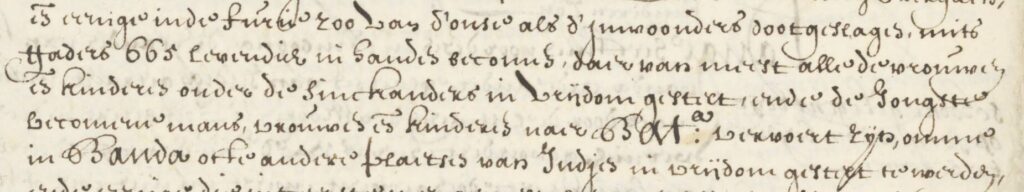 en eenige inde furie zoo van d'onse als d'Inwoonders dootgeslagen, mits
gaders 665 levendich in handen becomen, daer van meest alle de vrouwen
en kinderen onder de Sinckanders in vrijdom gestelt, ende de Jongste
becomene mans, vrouwen en kinderen naer Bat.a vervoert zijn, omme
in Banda ofte andere plaetsen van Indjen in vrijdom gestelt te werden,